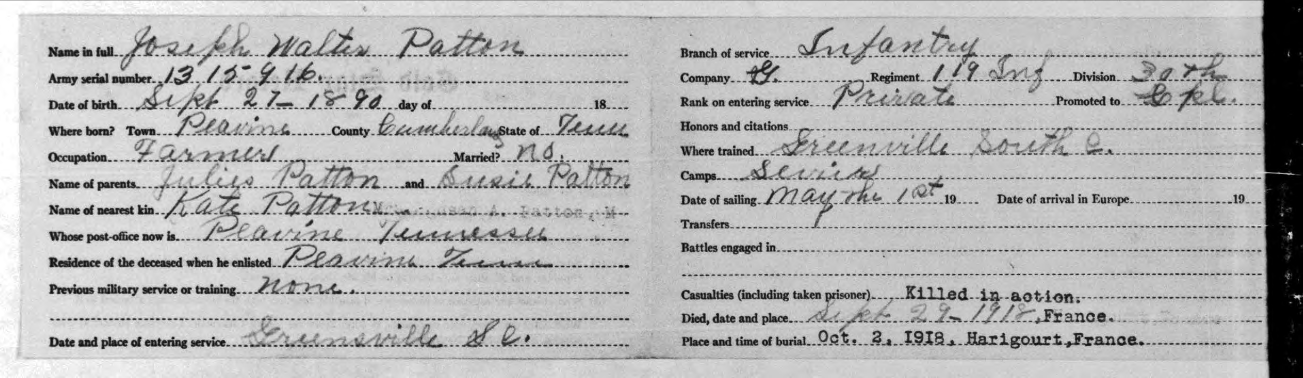 Name in full Joseph Walter Patton
Army serial number 1315916.
Date of birth Sept 27-1890 day of 18
Where born? Town Peavine County Cumberland State of Tenn
Occupation Farmer Married? no.
Name of parents Julius Patton and Susie Patton
Name of nearest kin Kate Patton
Whose post-office now is Peavine Tennessee
Residence of the deceased when he enlisted Peavine Tenn
Previous military service or training none.
Date and place of entering service Greensville S C.
Branch of service Infantry
Company G. Regiment 119 Inf Division 30th
Rank on entering service Private Promoted to Cpl.
Honors and citations
Where trained Greenville South C.
Camps Sevier
Date of sailing May the 1st 19 Date of arrival in Europe 19
Transfers
Battles engaged in
Casualties (including taken prisoner) Killed in action.
Died, date and place Sept 29-1918, France.
Place and time of burial Oct. 2, 1918, Harigourt, France.